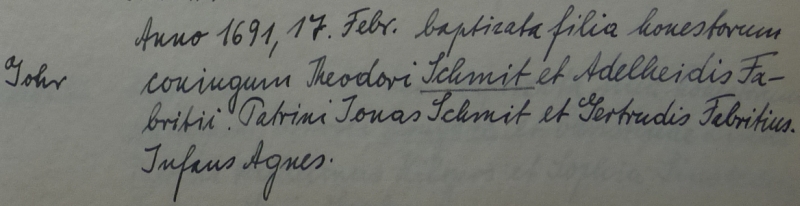 Anno 1691, 17. Febr. baptizata filia honestorum
Gohr coniugum Theodori Schmit et Adelheidis Fa-
britii. Patrini Jonas Schmit et Gertrudis Fabritius.
Infans Agnes.